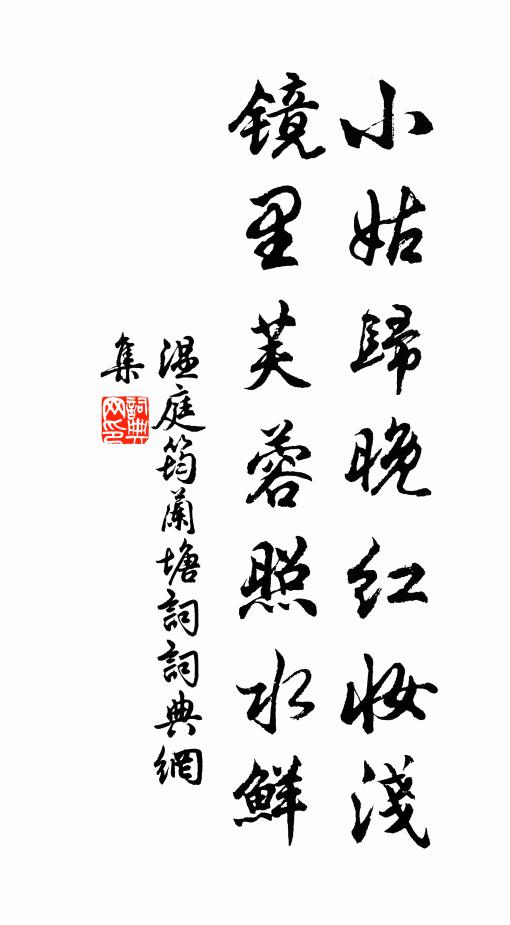 小姑歸晚红妆淺
鏡里芙蓉照水鮮
温庭筠蘭塘詞詞典網
集
詞典网印